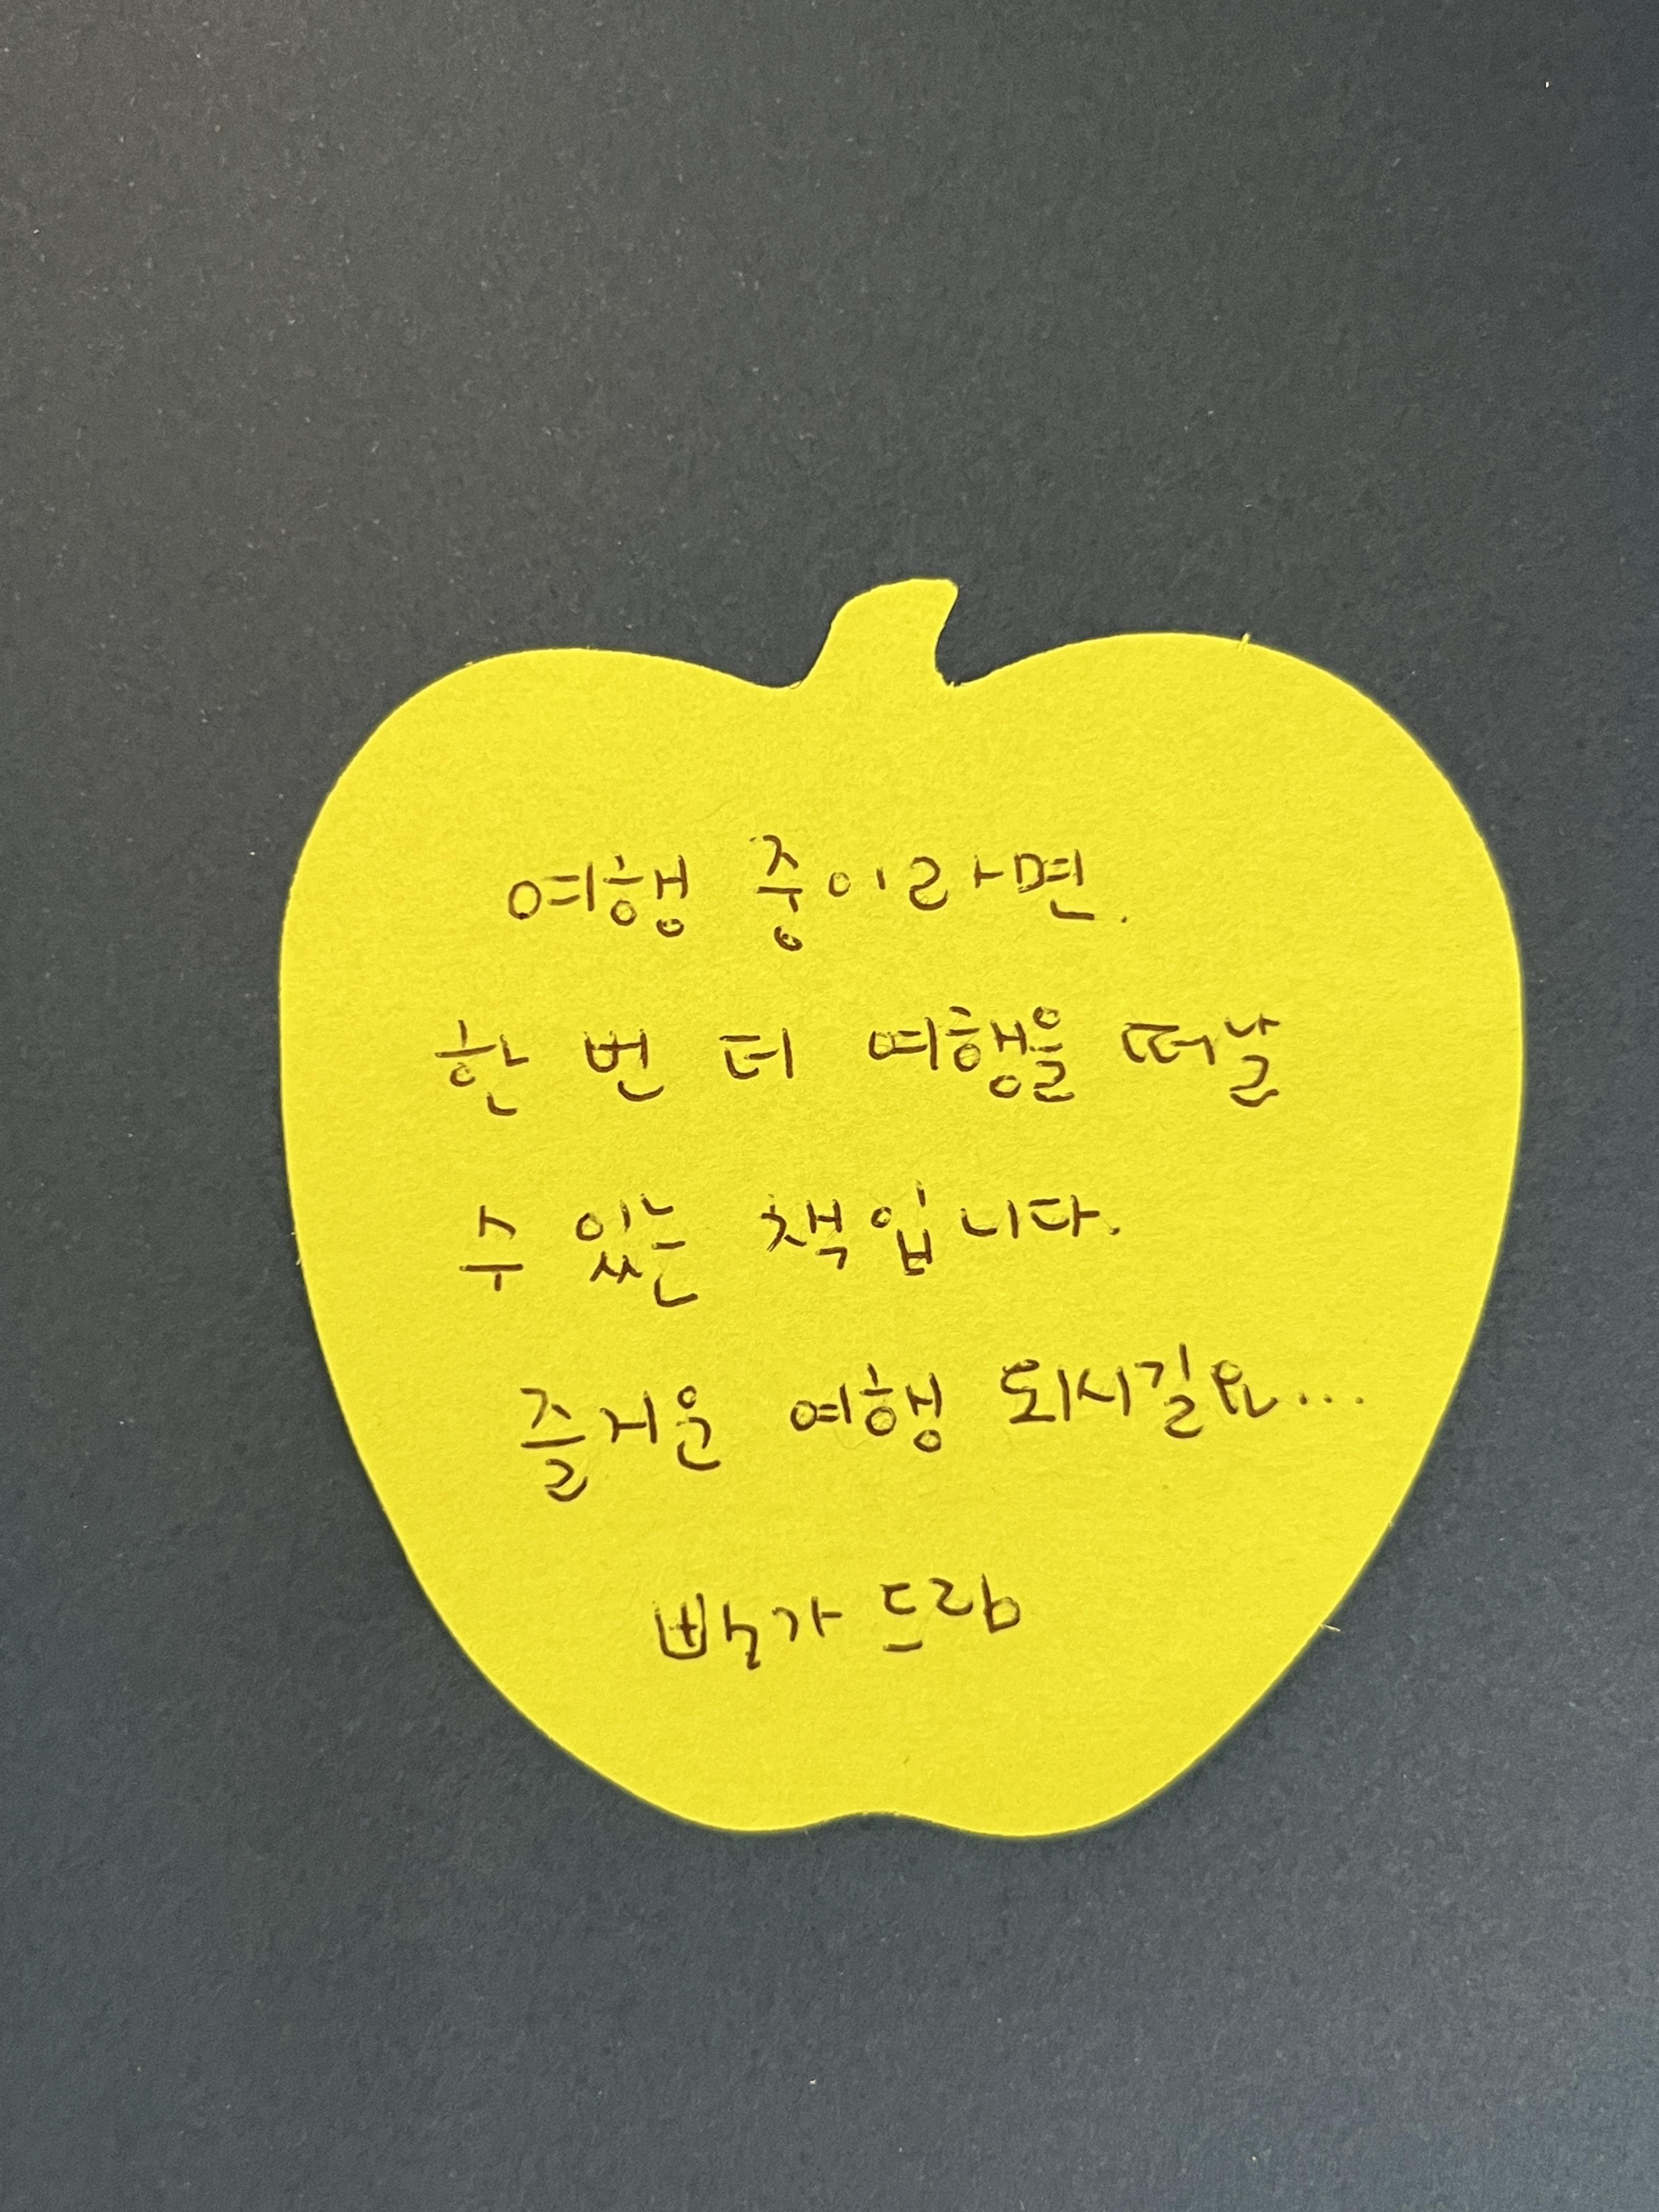 여행 중이라면.
한 번 더 여행을 떠날
수 있는 책입니다.
즐거운 여행 되시길요...
빽가 드림